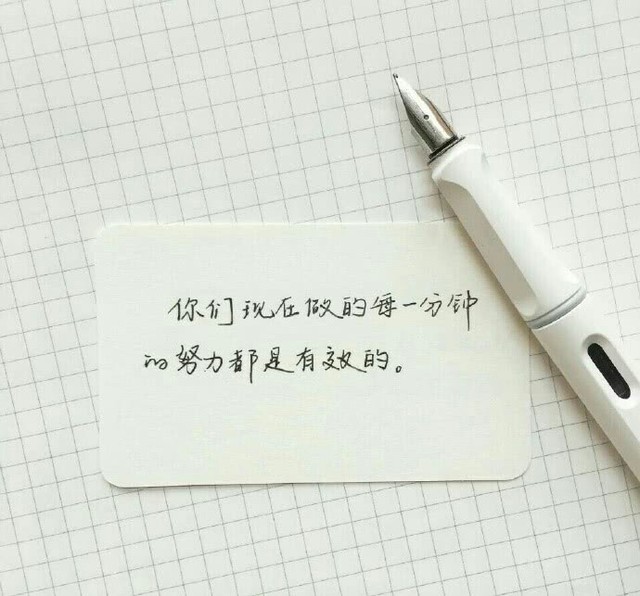 你们现在做的每一分钟
的努力都是有效的。